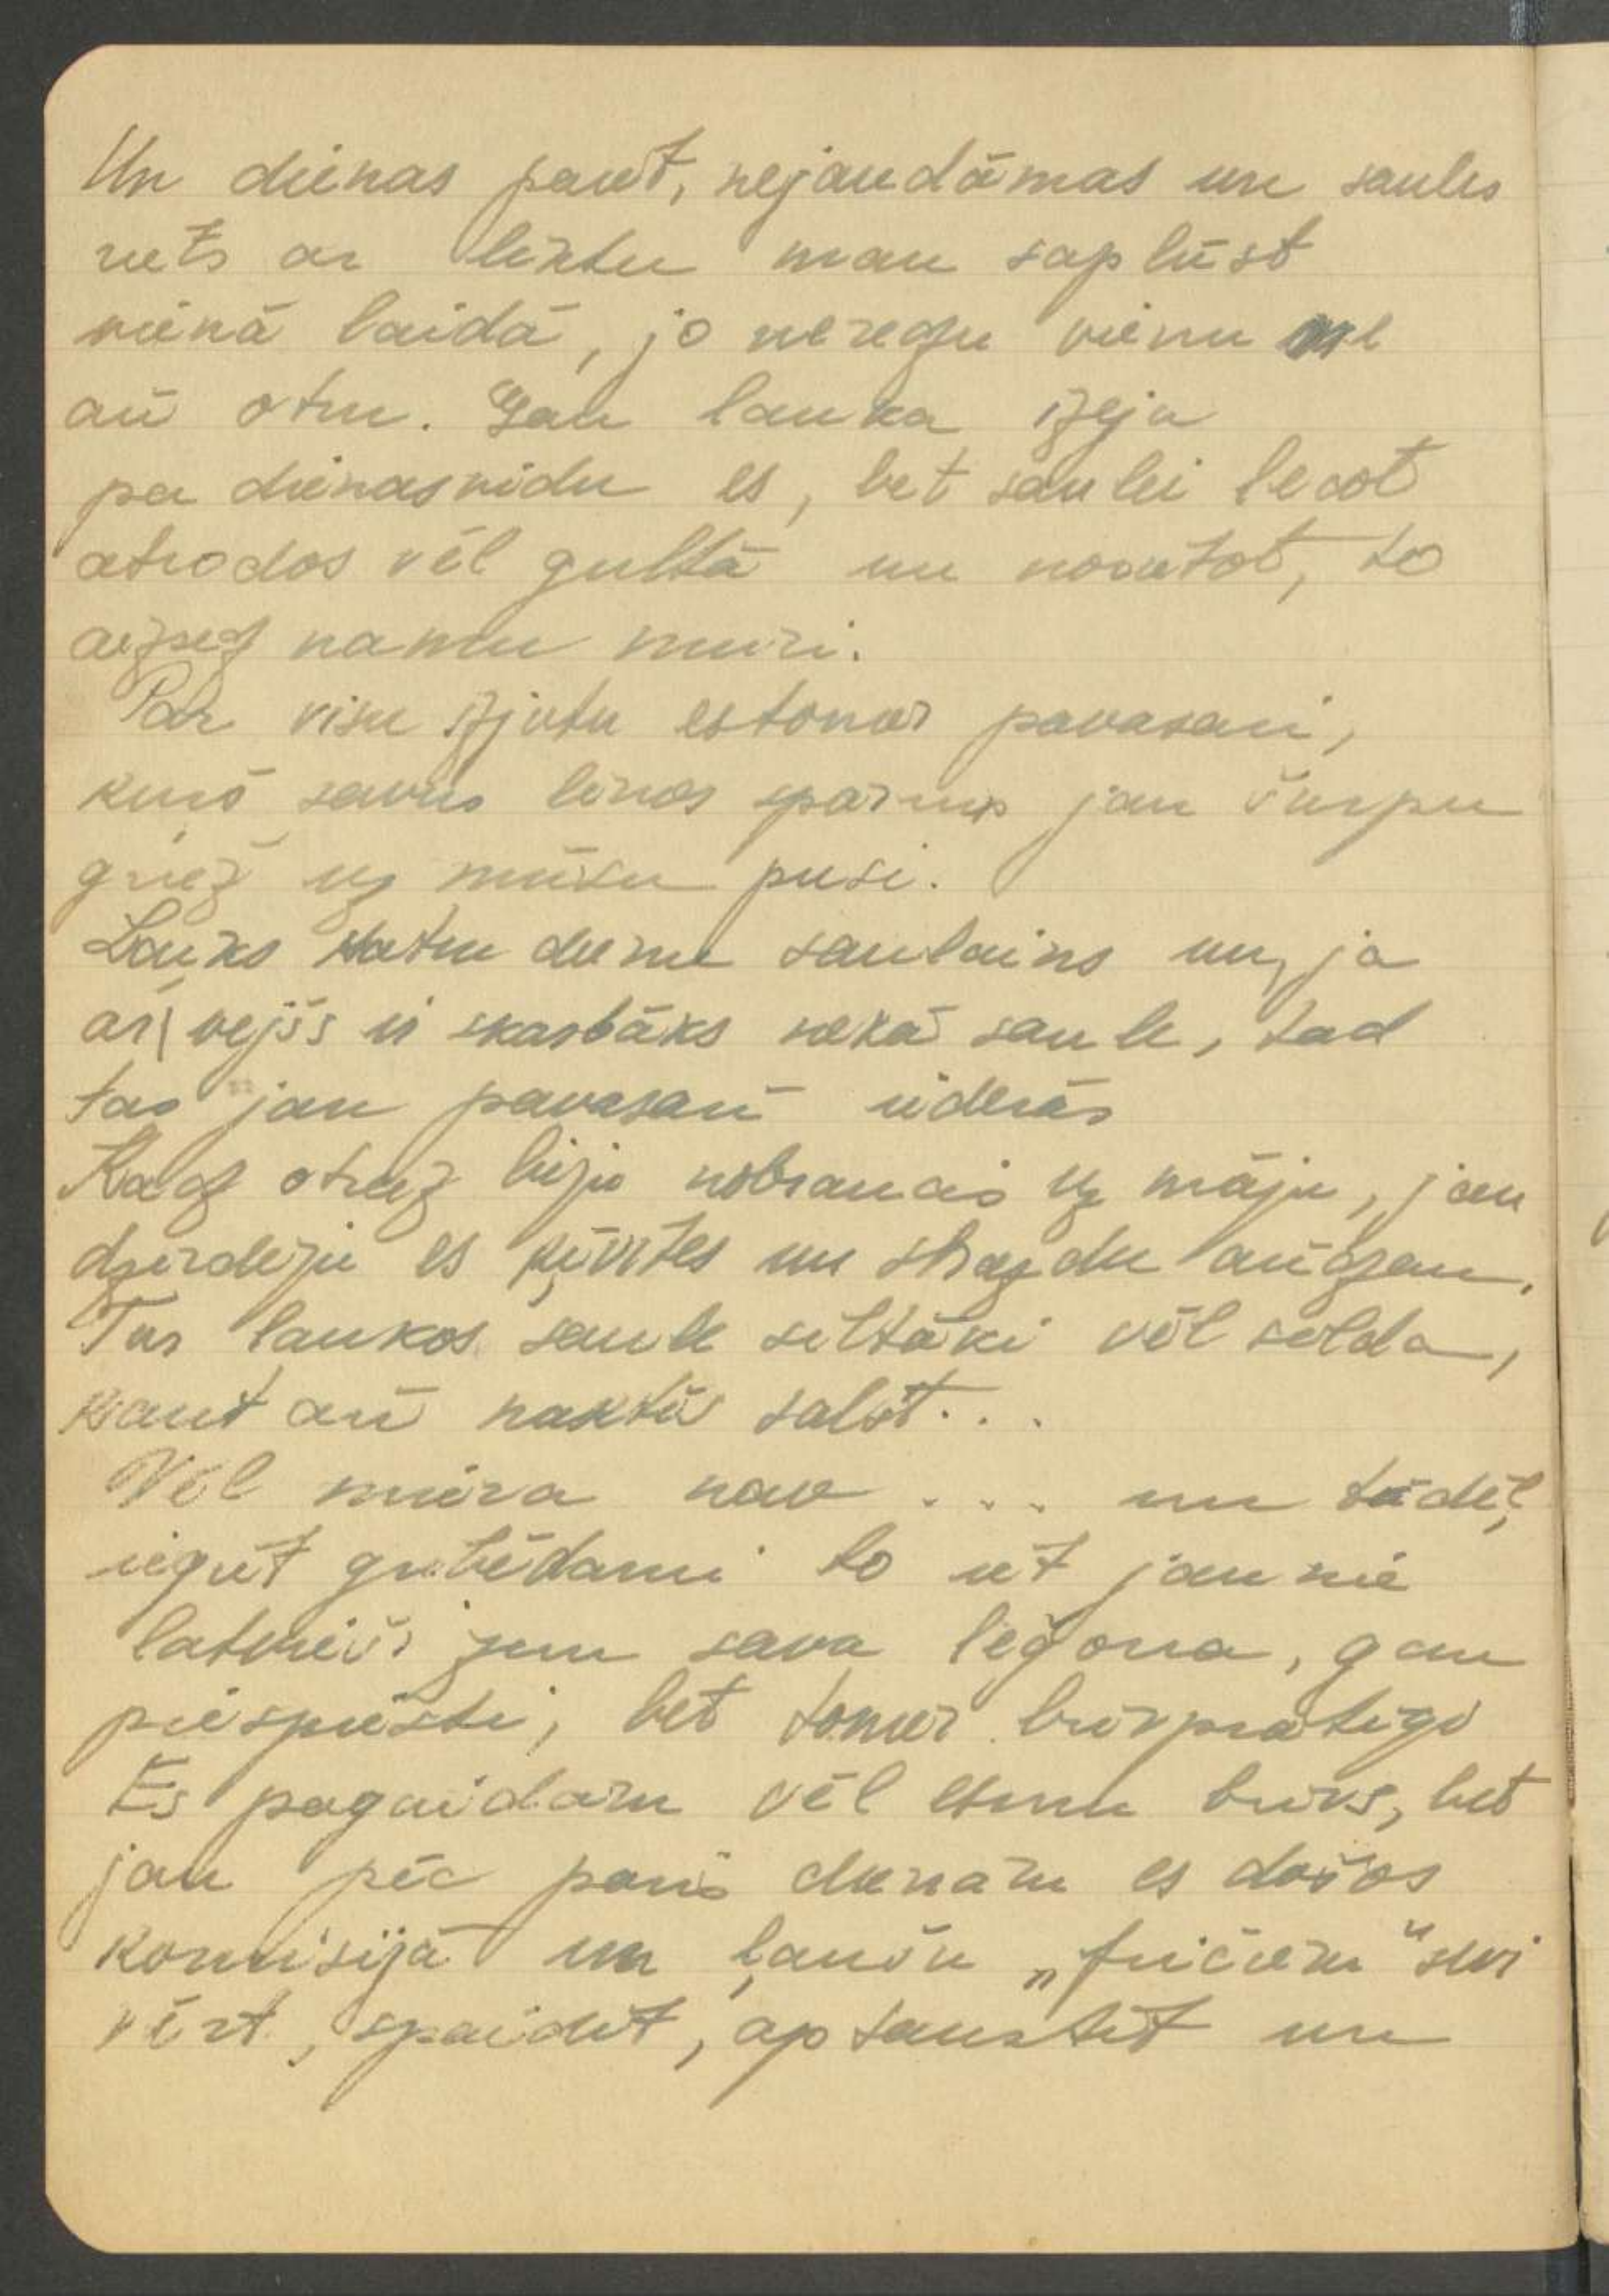 Un dienas paiet, nejaudāmas un saules
riets ar lēktu man saplūst
vienā laidā, jo neredzu vienu ne
arī otru. Gan laukā izeju
pa dienasvidu es, bet saulei lecot
atrodos vēl gultā un norietot, to
aizsedz namu mūri.
Par visu izjūtu es tomēr pavasari,
kurš savus lēnos spārnus jau šurpu
griež uz mūsu pusi.
Lauks katru dienu saulains un, ja
arī vējšs ir skarbāks nekā saule, tad
tas jau pavasarī iederas
Kad otrdz biju nobraucis uz māju, jau
dzirdēju es ķīvītes un strazdu arīdzan.
Tur laukos saule siltāki vēl silda,
kaut arī naktīs salst...
Vēl miera nav ... un tādēļ,
iegūt gribēdami to iet jaunie
latvieši zem sava leģona, gan
piespiesti, bet tomēr brīvprātīgi
Es pagaidām vēl esmu brīvs, bet
jau pēc pāris dienām es došos
komisijā un ļaušu „fričiem" sevi
vērt, spaidīt, aptaustīt un